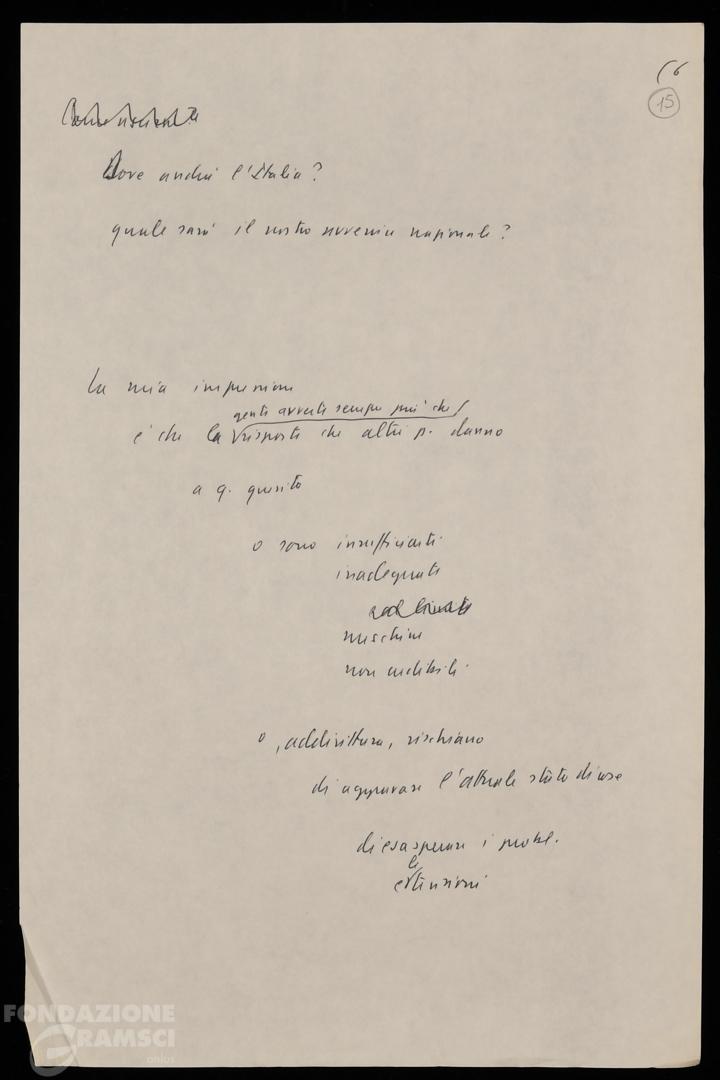 16
15
Dove andrà l'Italia?
quale sarà il nostro avvenire nazionale?
La mia impressione
gente avverte sempre più che
è che la risposte che altri p. danno
a q. quesito
o sono insufficienti
inadeguate
meschine
non credibili
o, addirittura, rischiano
di aggravare l'attuale stato di cose
di esasperare i probl.
le tensioni
FONDAZIONE
GRAMSCI
onlus